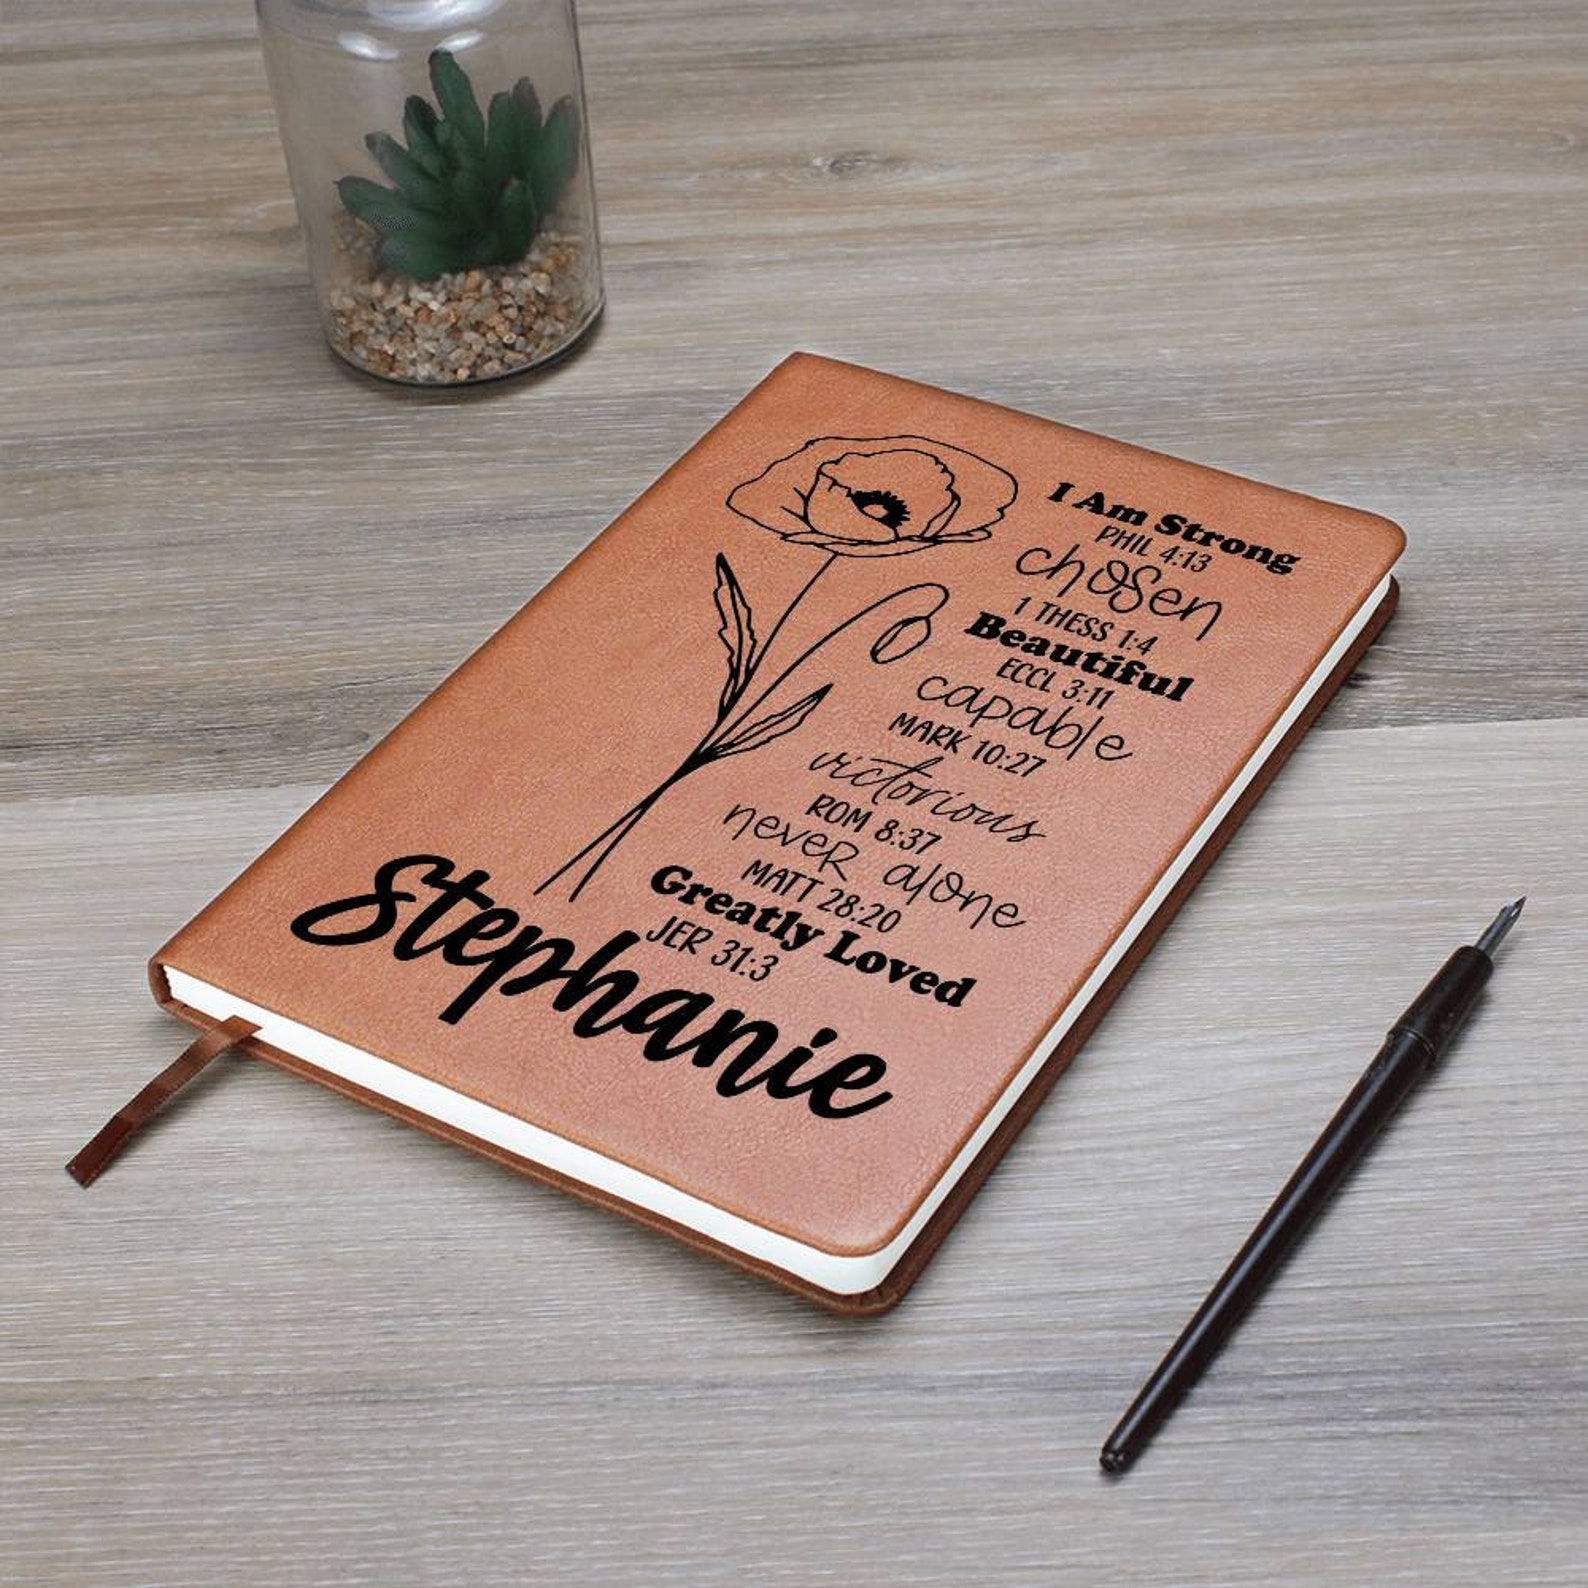 I Am Strong
PHIL 4:13
chosen
1 THESS 1:4
Beautiful
ECCL 3:11
capable
MARK 10:27
victorious
ROM 8:37
never alone
MATT 28:20
Greatly Loved
JER 31:3
Stephanie